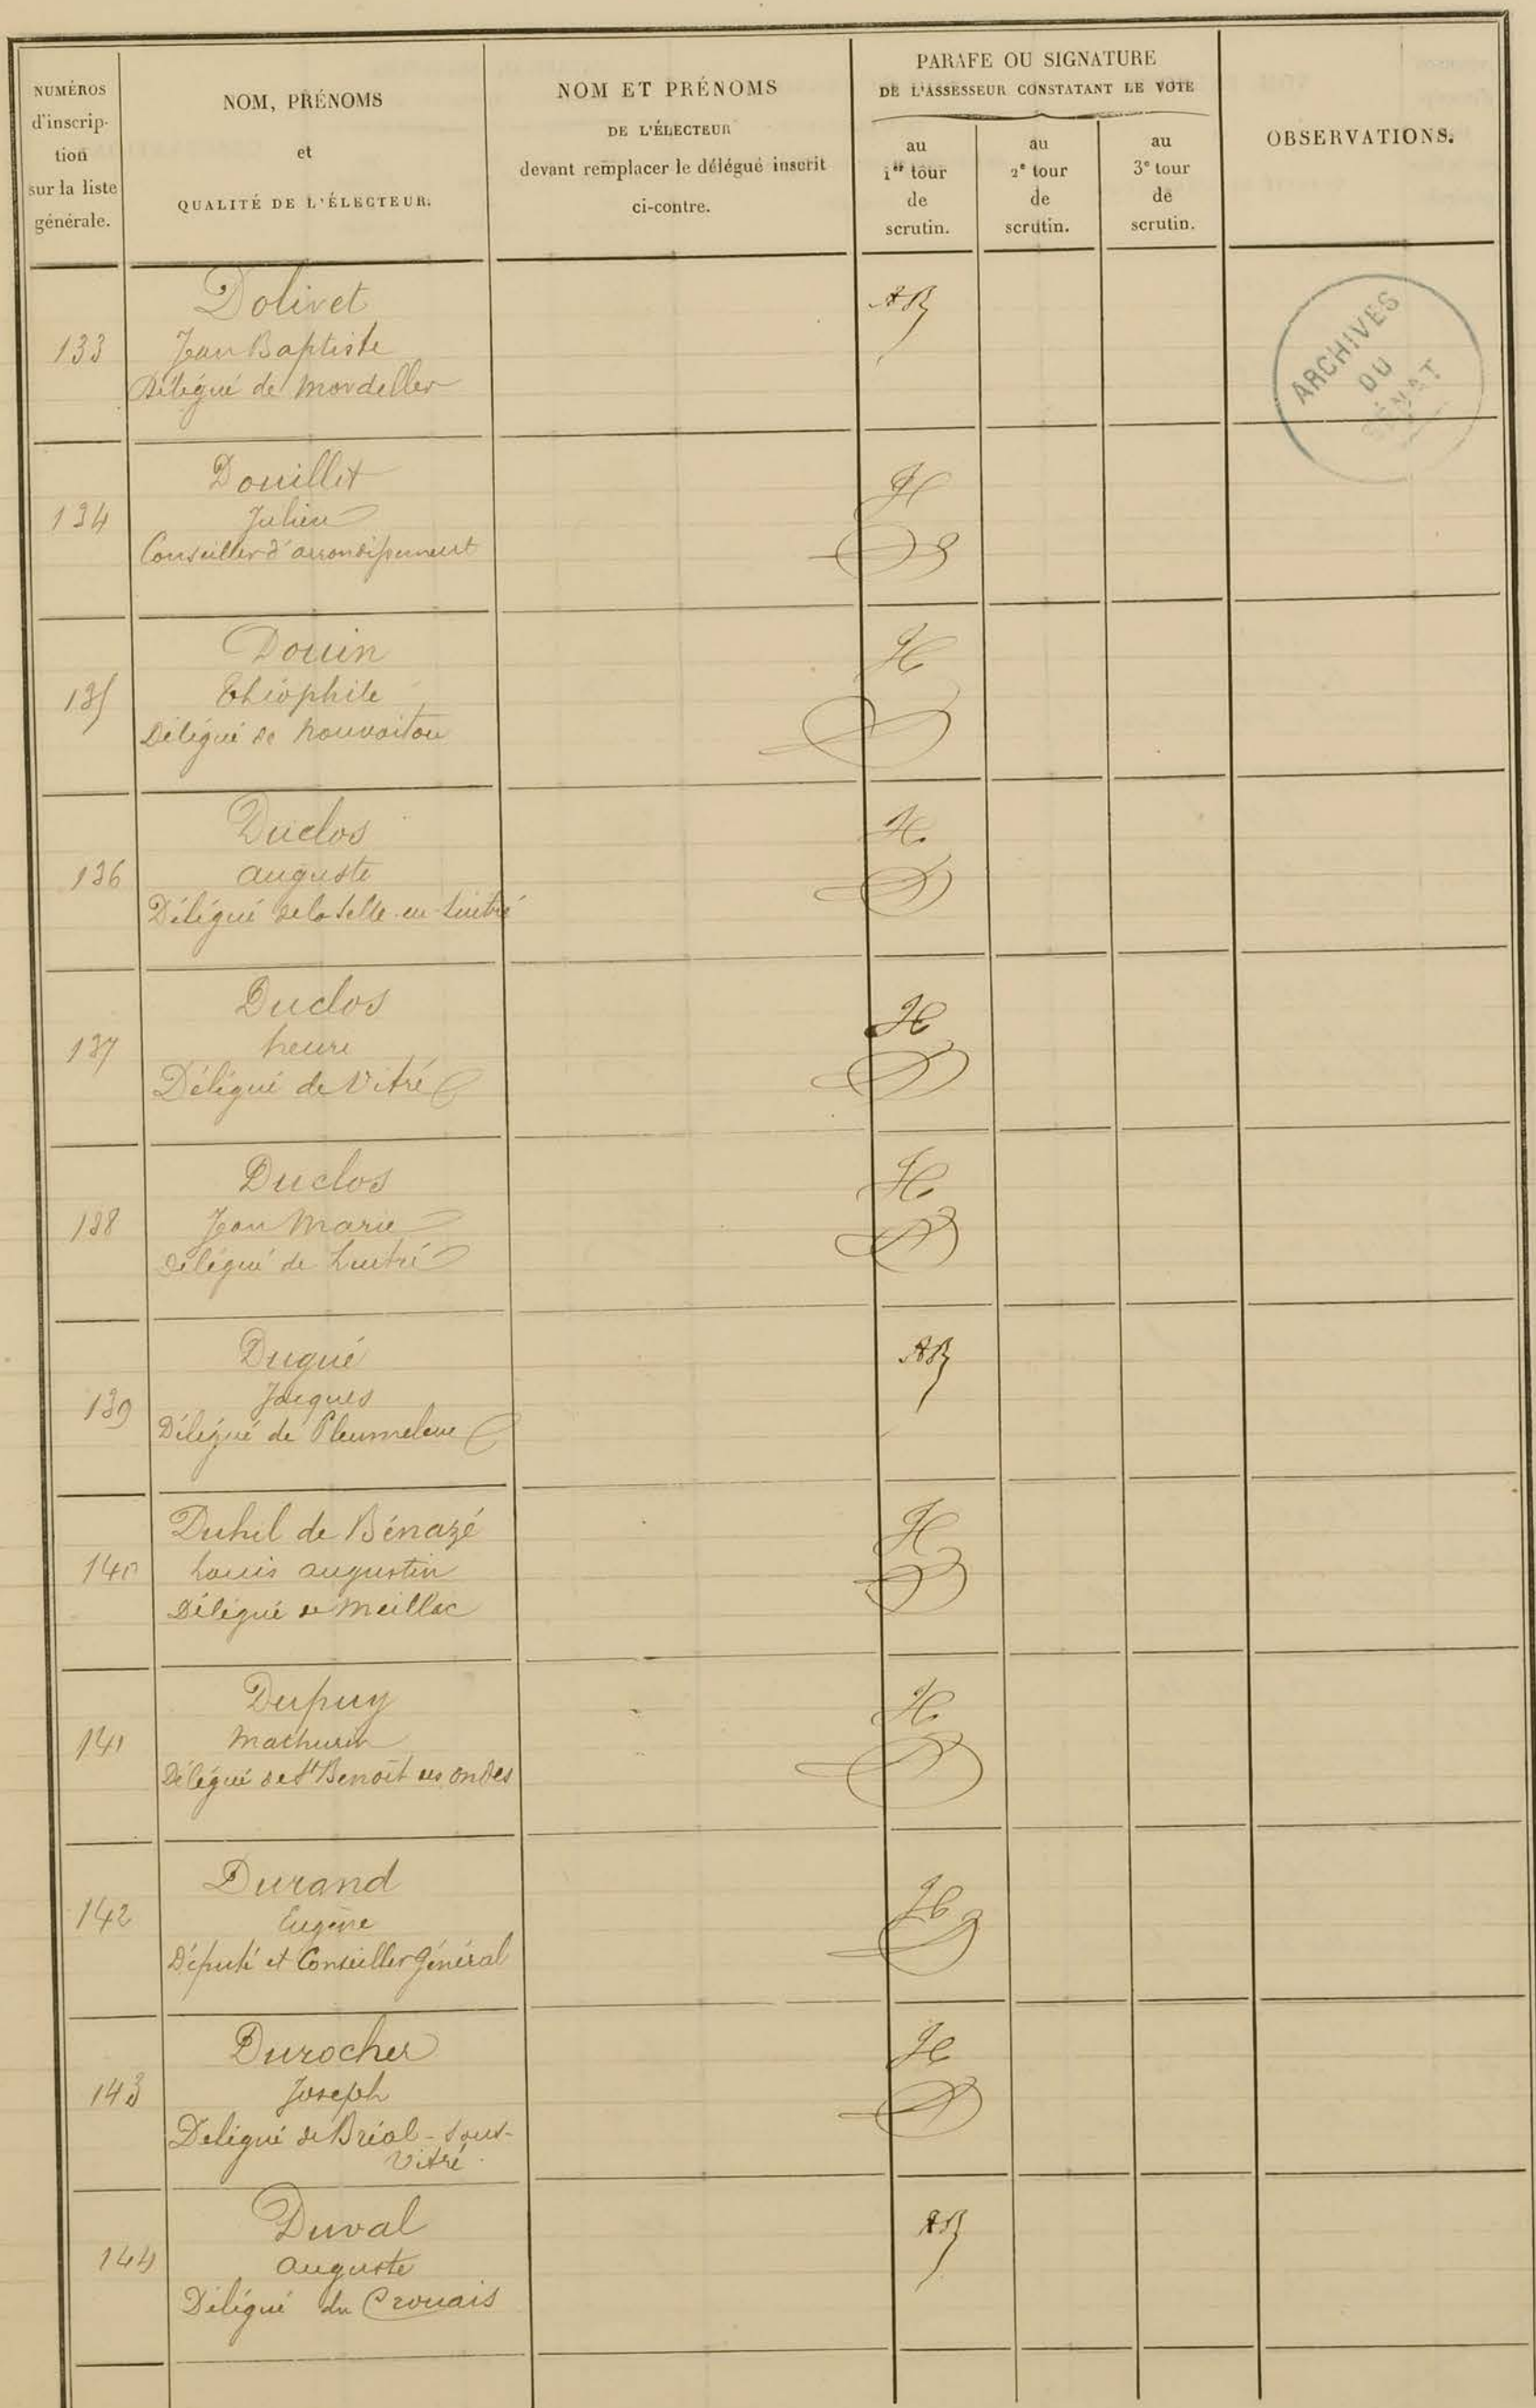 NUMÉROS
d'inscrip-
tion
sur la liste
générale.
NOM, PRÉNOMS
et
QUALITÉ DE L'ÉLECTEUR.
NOM ET PRÉNOMS
DE L'ÉLECTEUR
devant remplacer le délégué inscrit
ci-contre.
PARAFE OU SIGNATURE
DE L'ASSESSEUR CONSTATANT LE VOTE
au
1er tour
de
scrutin.
au
2e tour
de
scrutin.
au
3e tour
de
scrutin.
OBSERVATIONS.
ARCHIVES
DU
SÉNAT
133
Dolivet
Jean Baptiste
Délégué de Mordelles
AB
134
Douillet
Julien
Conseiller d'arrondissement
H
135
Douin
Théophile
Délégué de Nouvoitou
H
136
Duclos
Auguste
Délégué de la Selle-en-Luitré
H
137
Duclos
henri
Délégué de Vitré
H
138
Duclos
Jean Marie
Délégué de Luitré
H
139
Dugué
Jacques
Délégué de Pleumeleuc
AB
140
Duhil de Bénazé
Louis Augustin
Délégué de Meillac
H
141
Dupuy
Mathurin
Délégué de St Benoît des ondes
H
142
Durand
Eugène
Député et Conseiller Général
H
143
Durocher
Joseph
Délégué de Bréal-sous-
Vitré
H
144
Duval
Auguste
Délégué du Crouais
AB